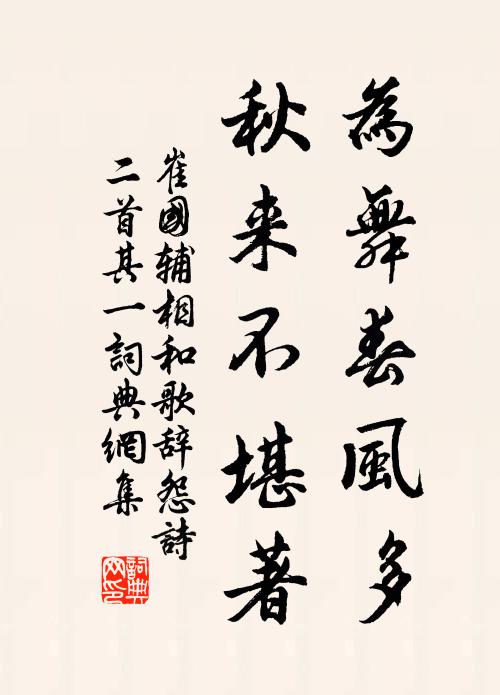 為舞春風多
秋来不堪著
崔國辅相和歌辞怨詩
二首其一詞典網集
詞典
网印